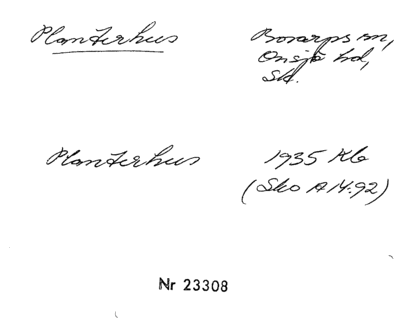 Planterhus
Bosarps sn,
Onsjö hd,
Sk.
Planterhus
1935 Kla
(Sko A 14:92)
Nr 23308